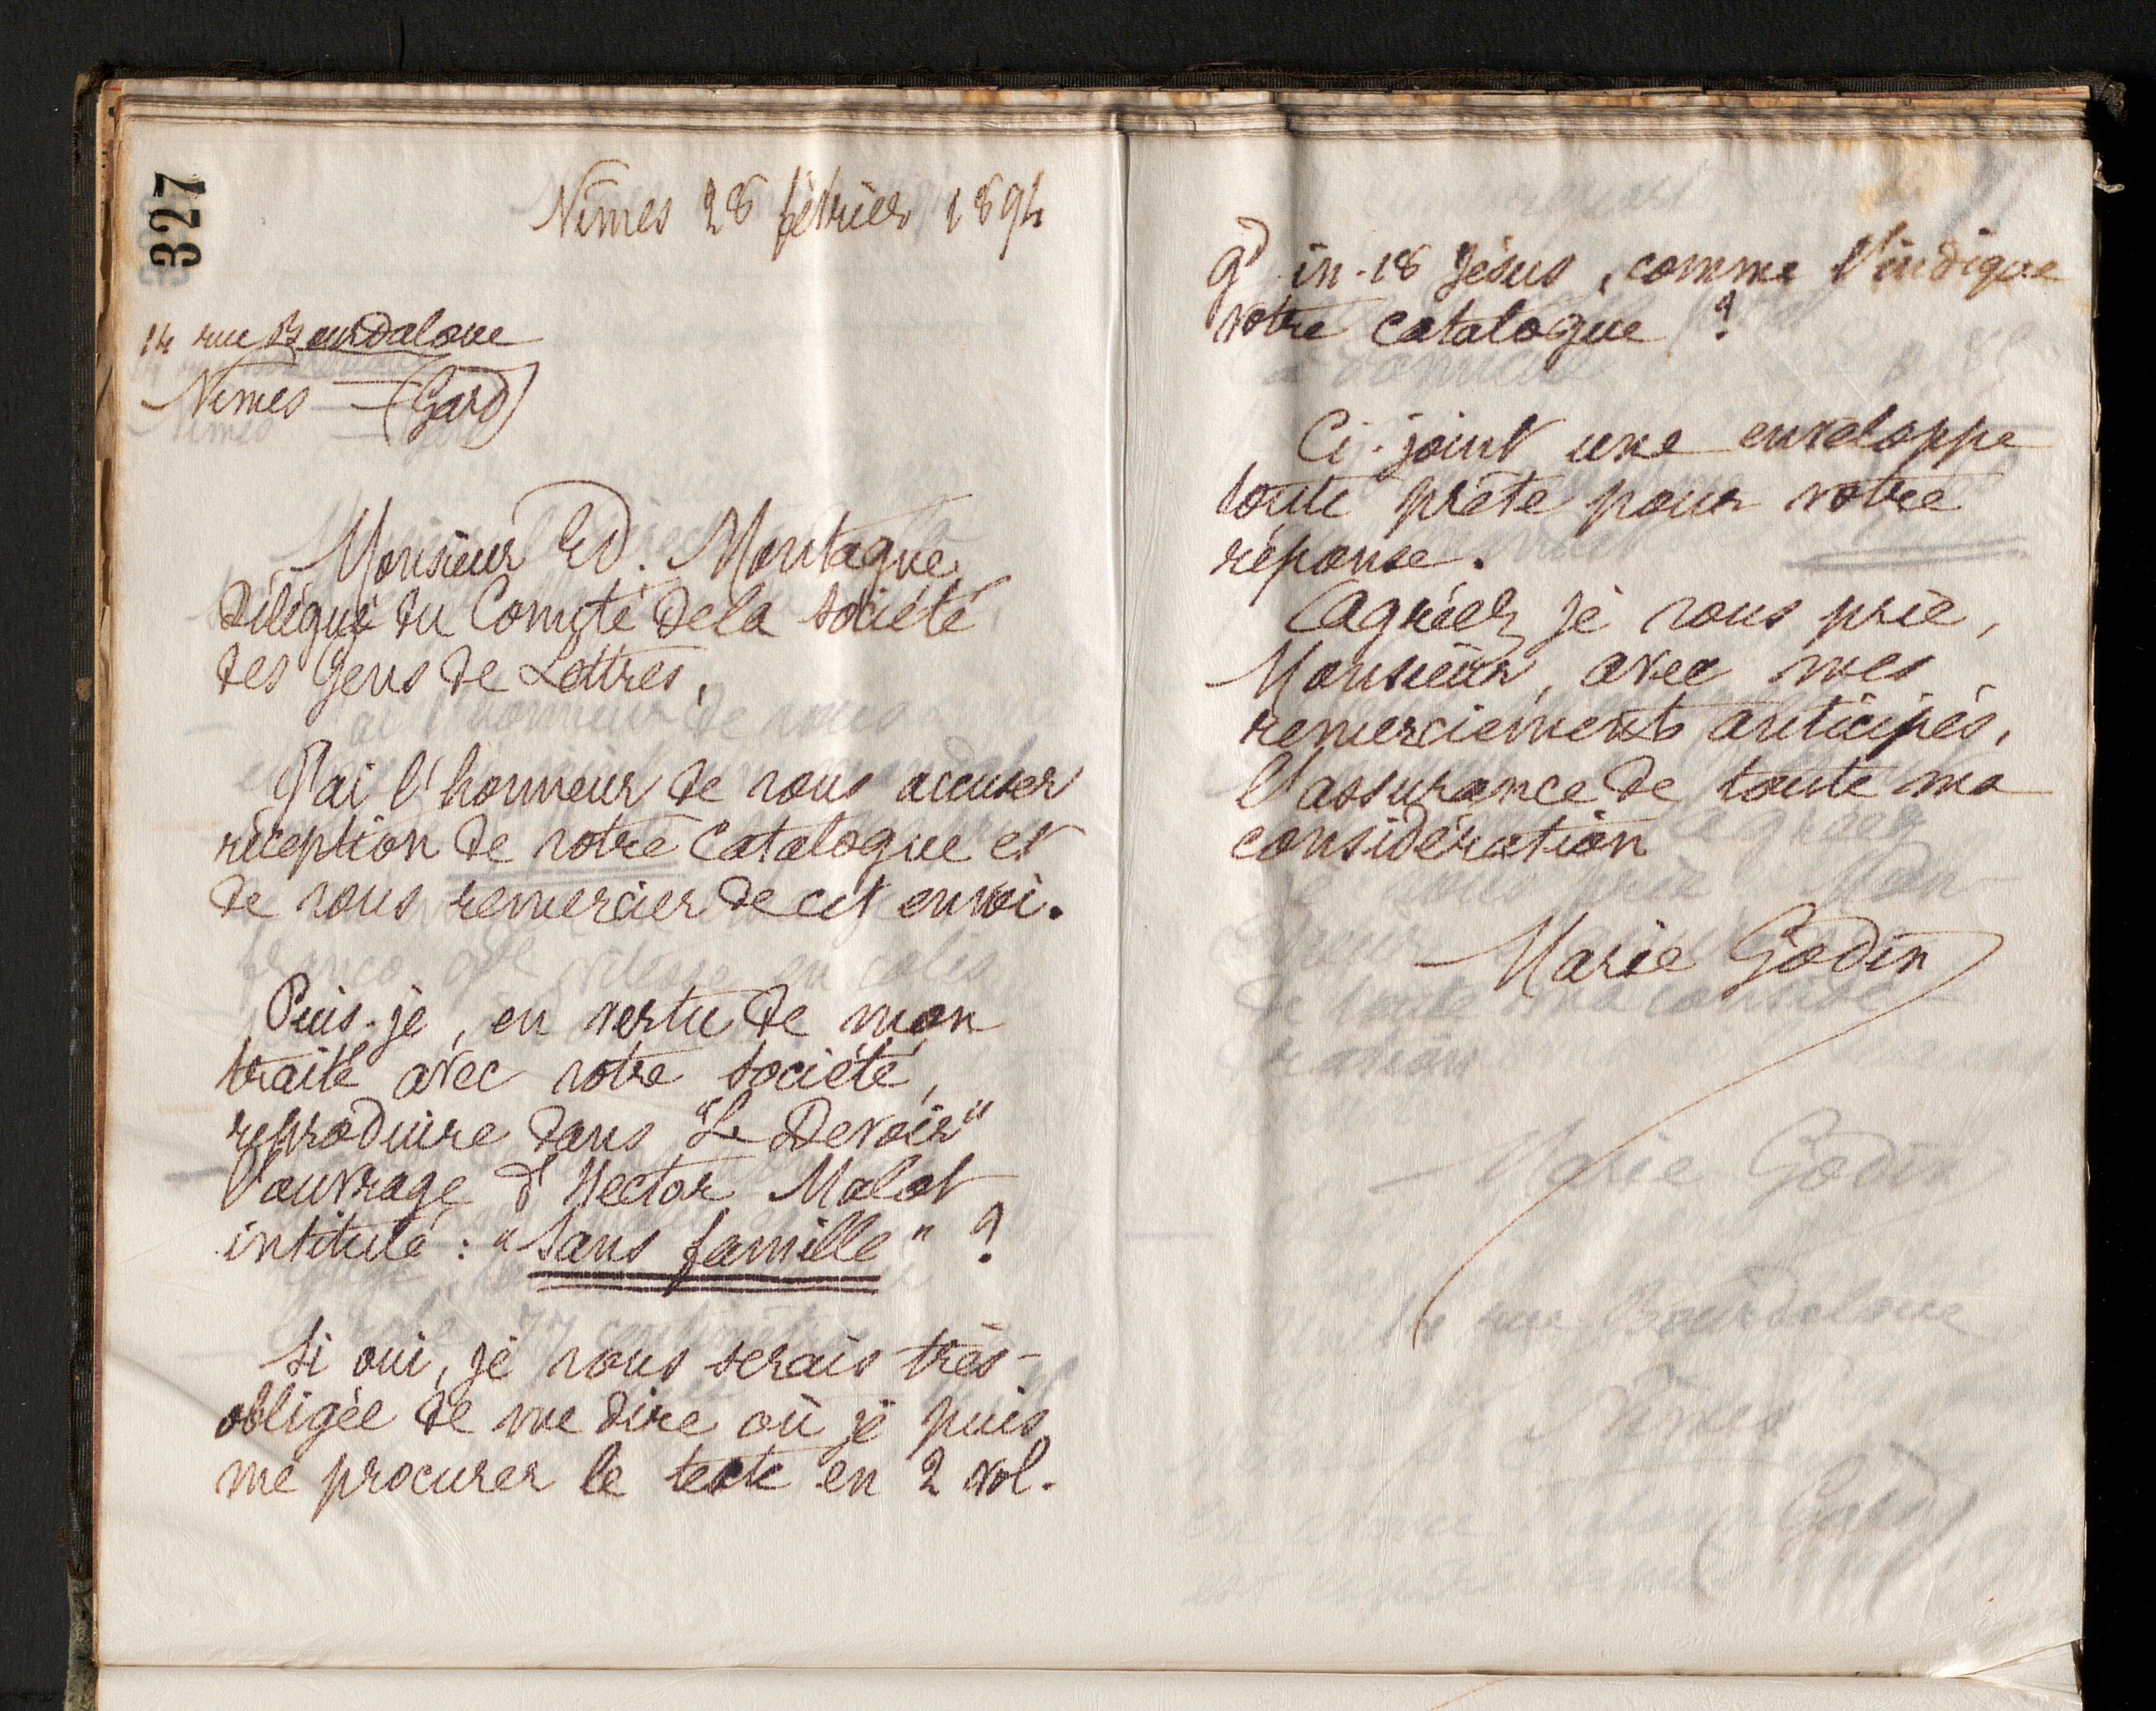 327
Nîmes 28 février 1894
14 rue Bourdaloue
Nîmes — (Gard)
Monsieur Ed. Montagne
Délégué du Comité de la société
des Gens de Lettres,
J'ai l'honneur de vous accuser
réception de votre catalogue et
de vous remercier de cet envoi.
Puis-je, en vertu de mon
traité avec votre société,
reproduire dans "Le Devoir"
l'ouvrage d'Hector Malot
intitulé : "Sans famille" ?
Si oui, je vous serais très-
obligée de me dire où je puis
me procurer le texte en 2 vol.
gd in-18 Jésus, comme l'indique
votre catalogue ?
Ci-joint une enveloppe
toute prête pour votre
réponse.
Agréez je vous prie,
Monsieur, avec mes
remerciements anticipés,
l'assurance de toute ma
considération
Marie Godin